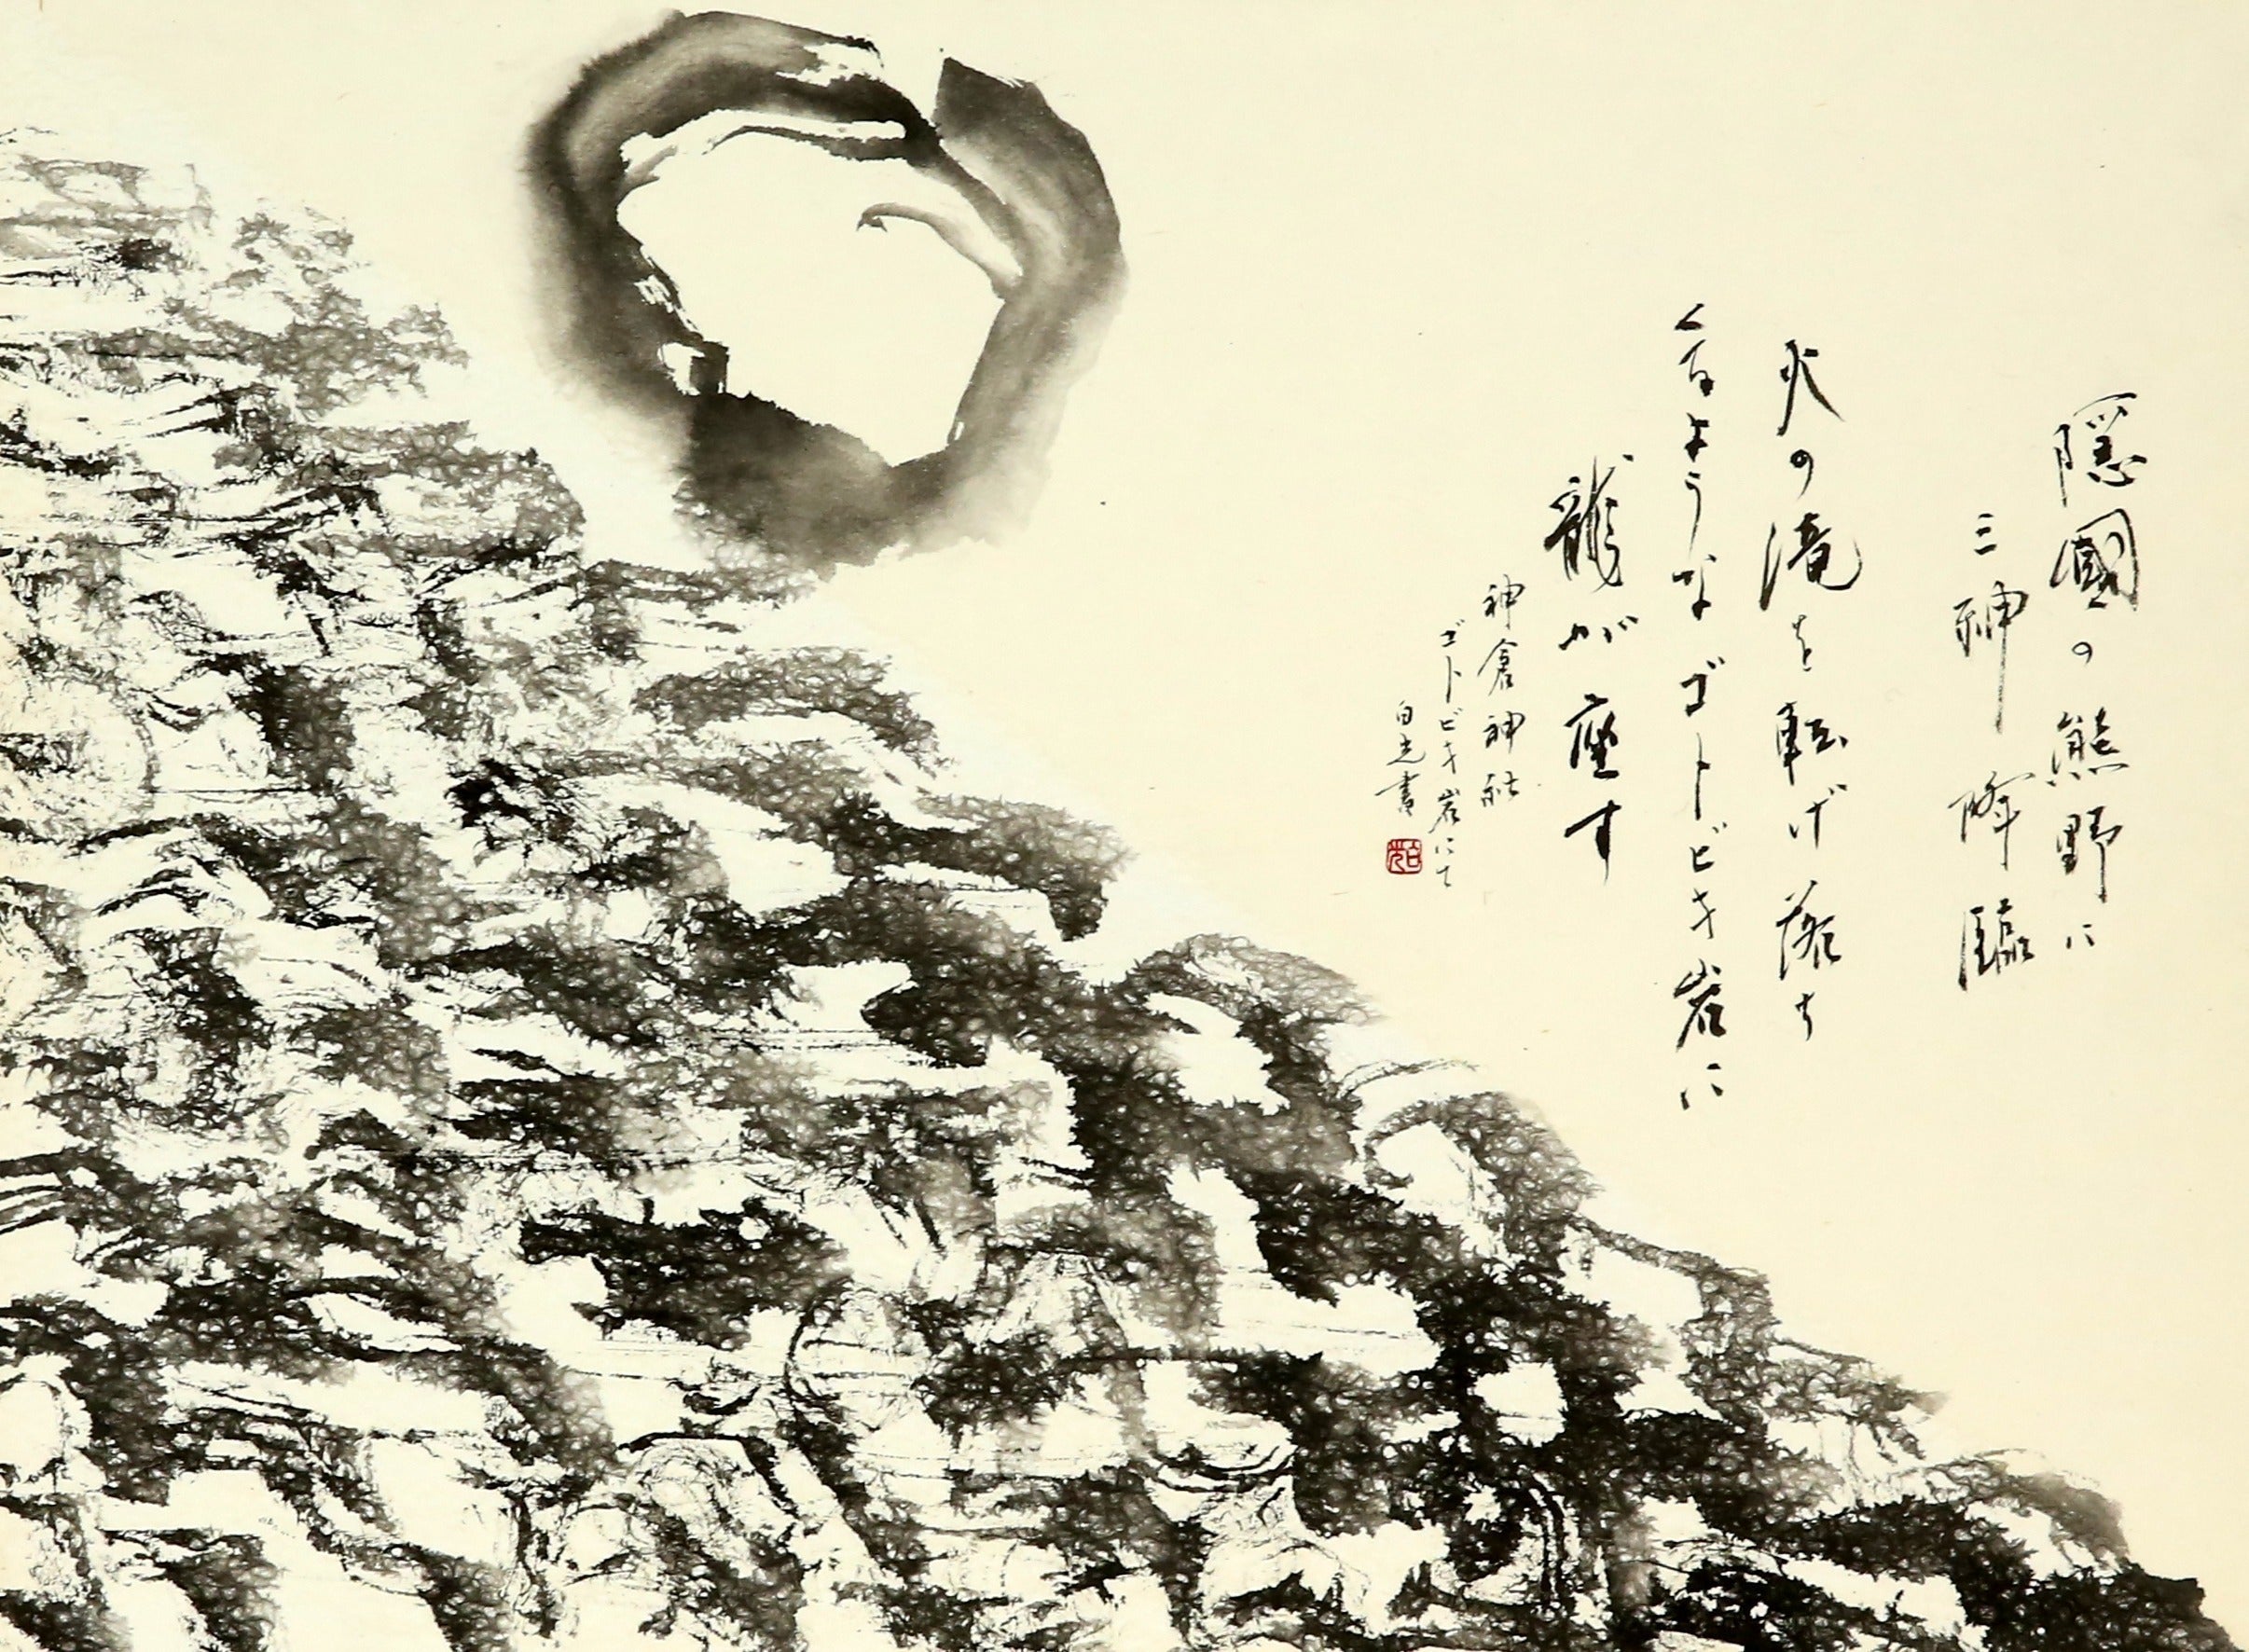 隠國の熊野に
三神降臨
火の滝を転げ落ち
るようなゴトビキ岩に
龍が座す
神倉神社
ゴトビキ岩にて
白光書
白光